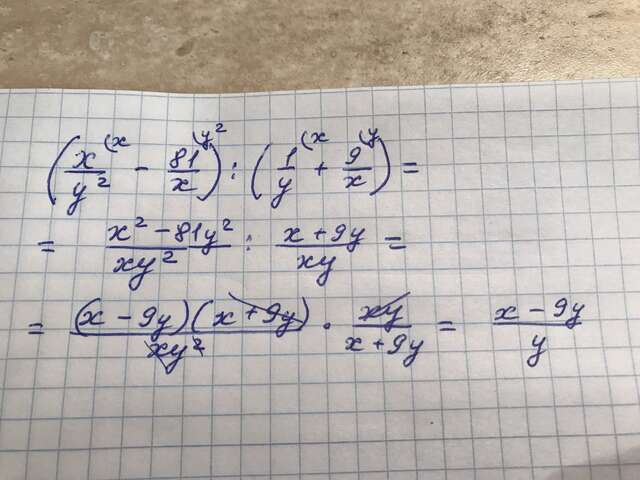 (x/y² (x - 81/x (y²) : (1/y (x + 9/x (y) =
= x² - 81y²/xy² : x + 9y/xy =
= (x - 9y)(x + 9y)/xy² · xy/x + 9y = x - 9y/y